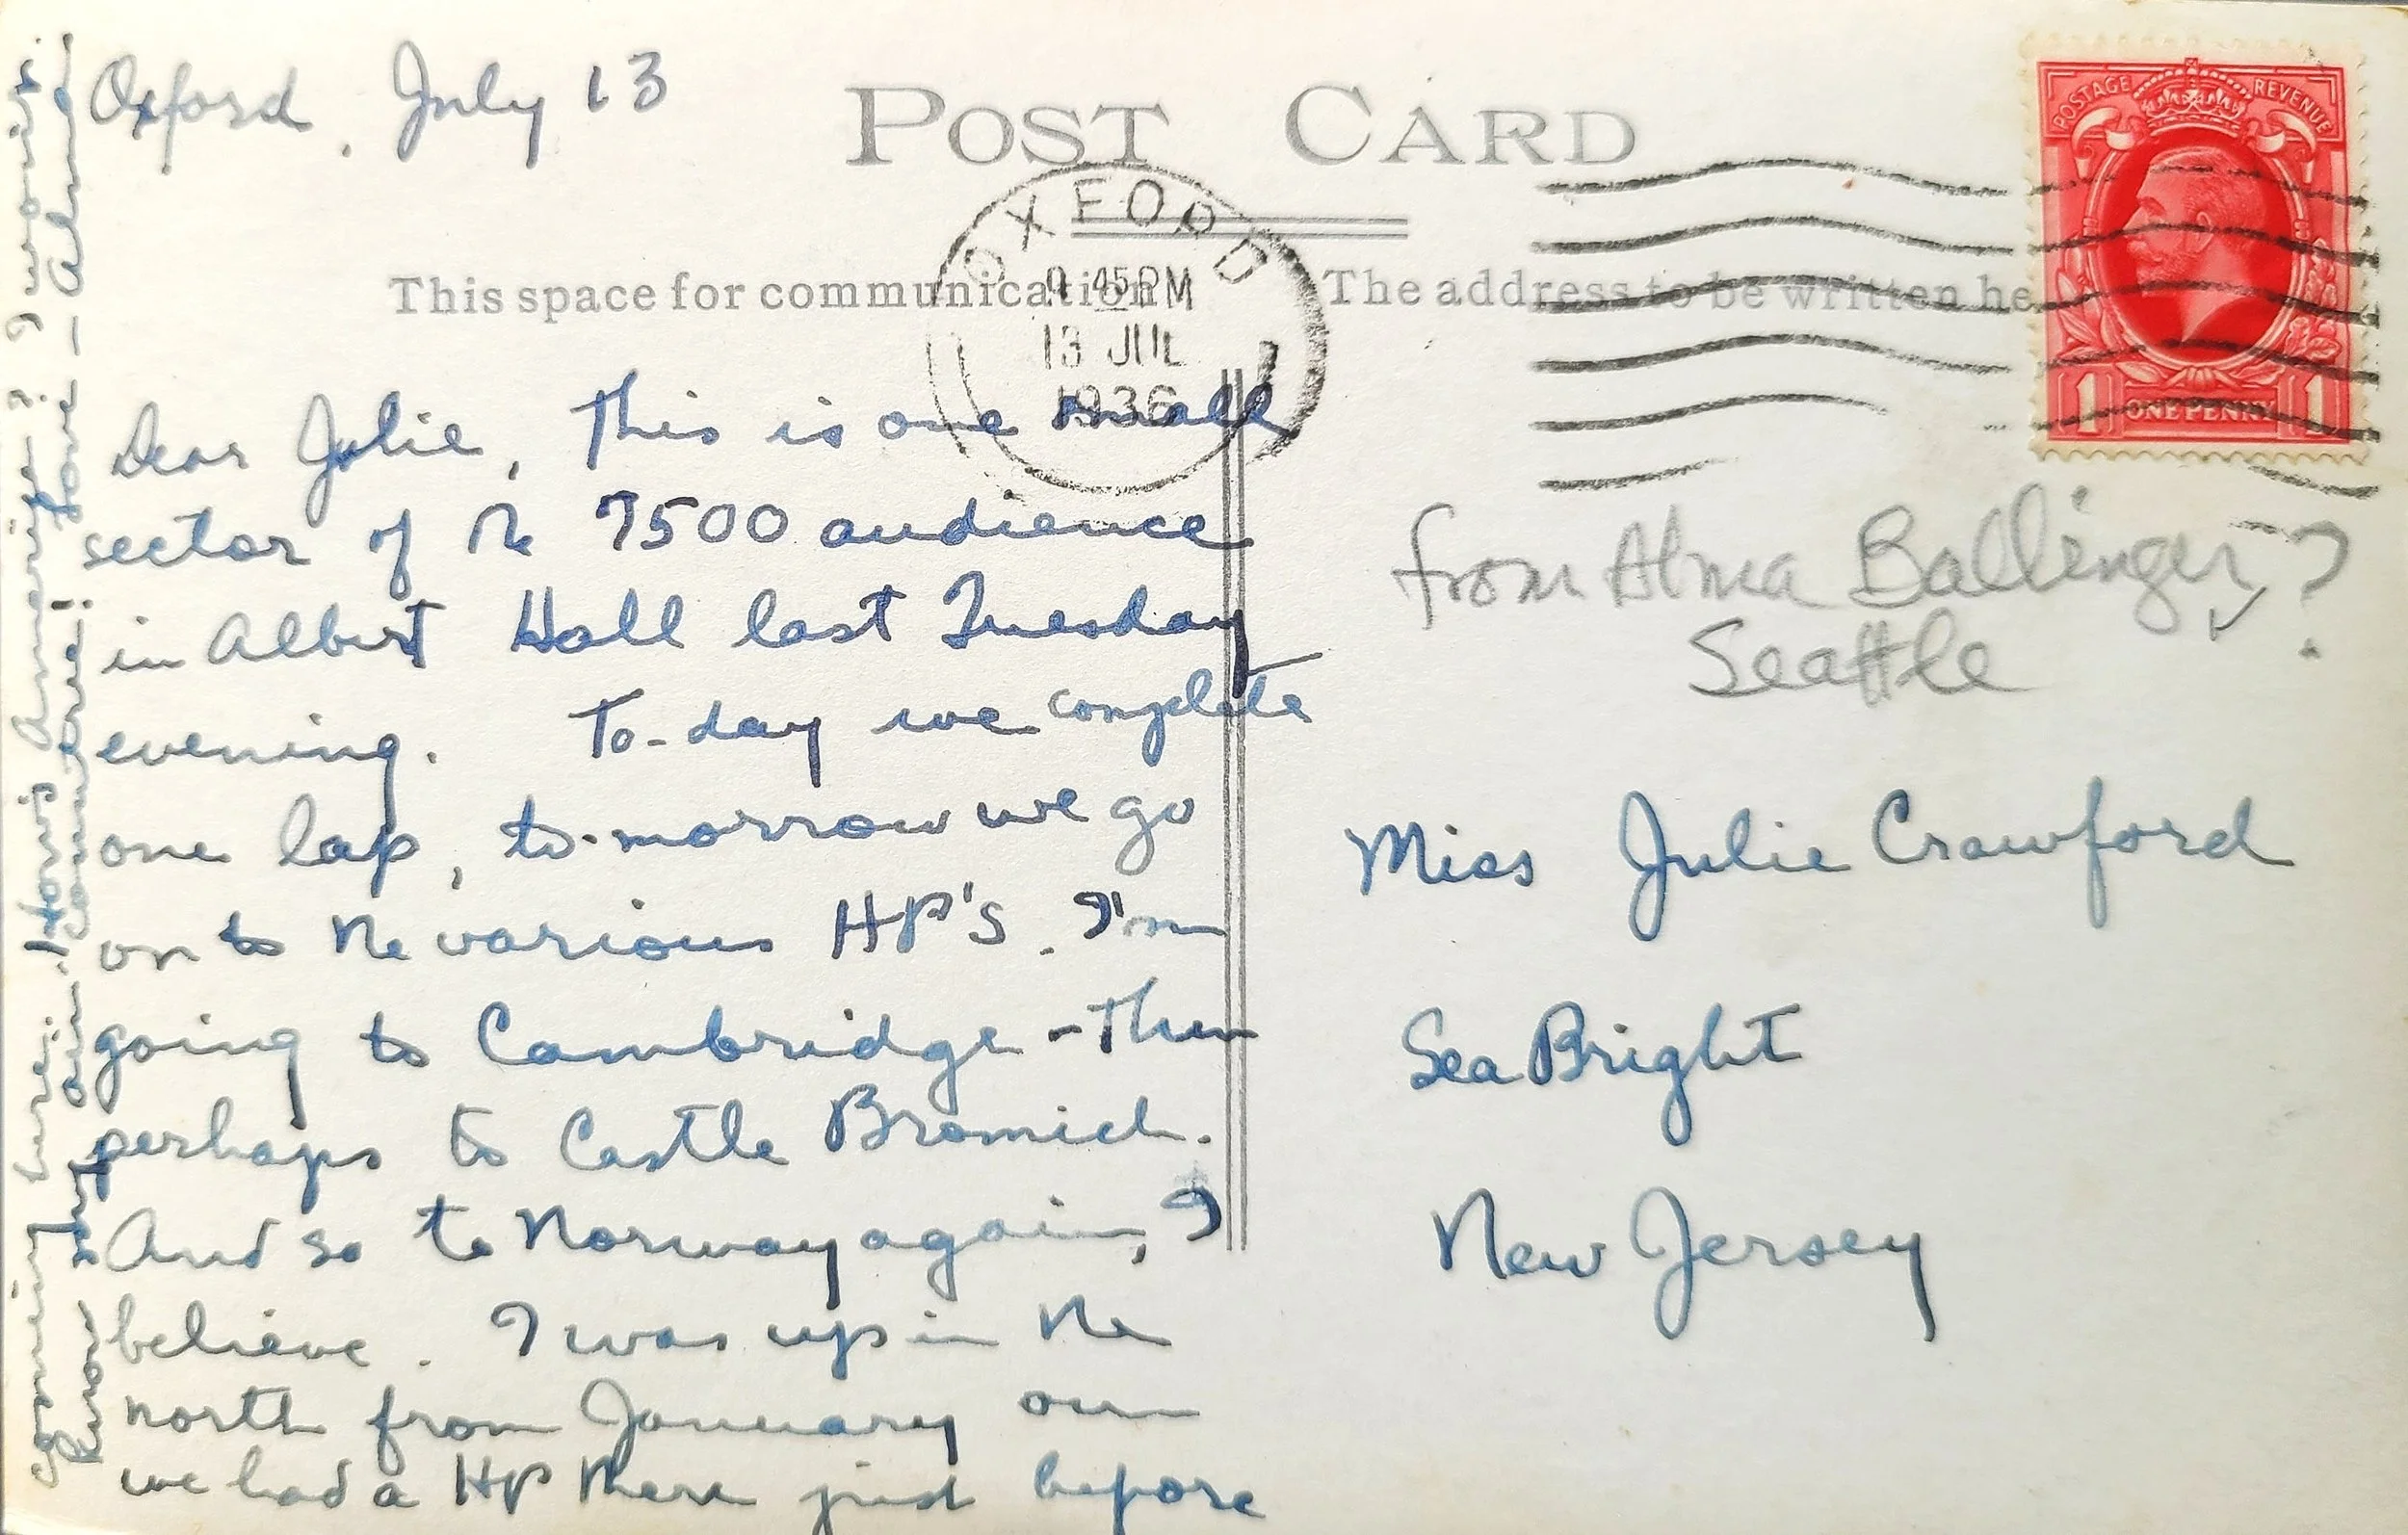 Oxford, July 13
POST CARD
This space for communication
The address to be written he
OXFORD
45 PM
13 JUL
1936
POSTAGE REVENUE
1 ONE PENNY 1
Dear Julie, This is one small
sector of the 7500 audience
in Albert Hall last Tuesday
evening. To-day we complete
one lap, to-morrow we go
on to the various HP's. I'm
going to Cambridge - then
perhaps to Castle Bromich.
And so to Norway again, I
believe. I was up in the
north from January on
we had a HP there just before
coming here. How's America? I wouldn't
know my own countree! Love - Alma.
from Alma Ballinger, ?
Seattle
Miss Julie Crawford
Sea Bright
New Jersey